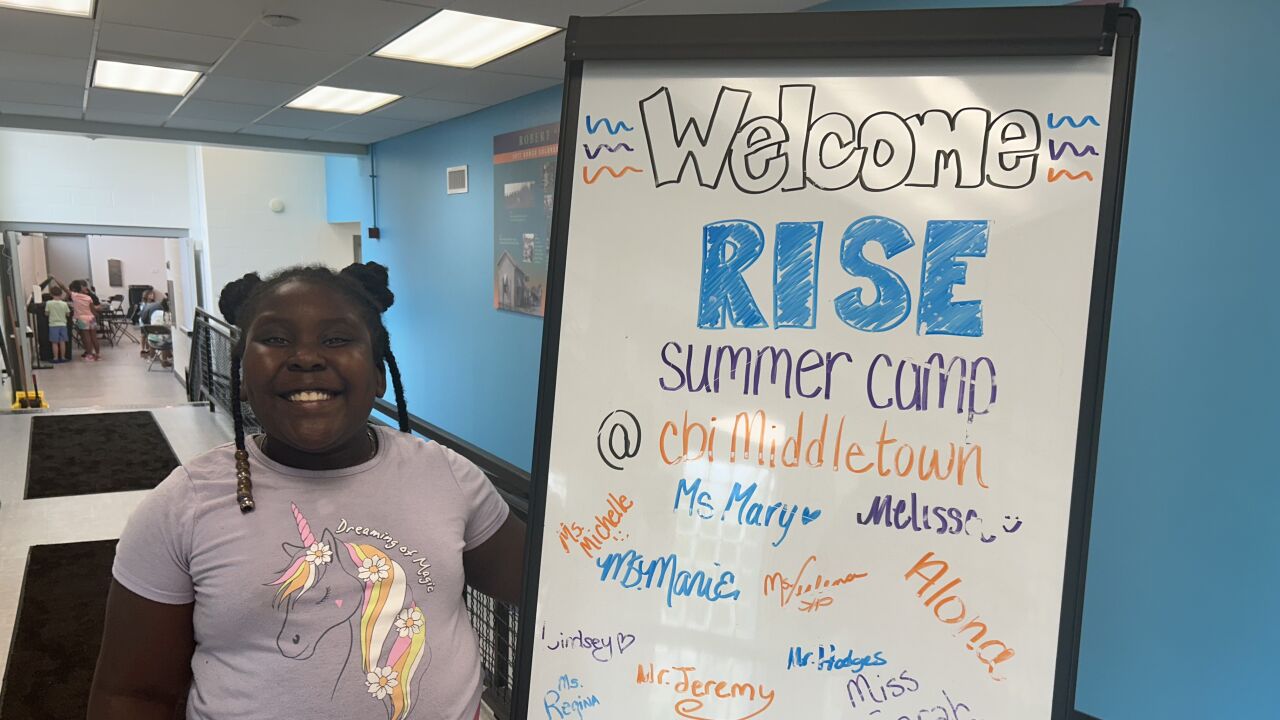 Welcome
RISE
summer camp
@ cbi Middletown
Ms. Mary
Melissa
Ms. Michelle
Ms. Marie
Alona
Lindsey
Mr. Hodges
Mr. Jeremy
Miss
Ms. Regina
Dreaming of Magic
ROBERT